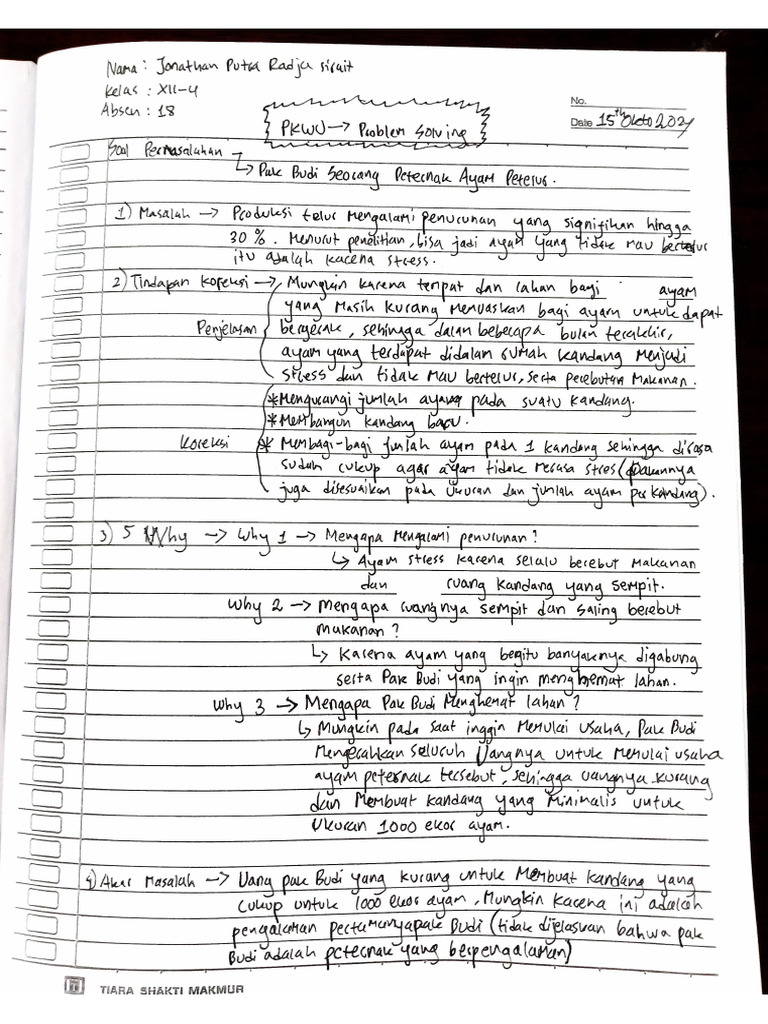 Nama : Jonathan Putra Radja Sirait
Kelas : XII-4
Absen : 18
PKWU → Problem Solving
No.
Date 15th Okto 2021
Soal Permasalahan
↳ Pak Budi Seorang Peternak Ayam Petelur.
1) Masalah → Produksi telur Mengalami penurunan yang signifikan hingga
30 %. Menurut penelitian, bisa jadi ayam yang tidak mau bertelur
itu adalah karena stress.
2) Tindapan Koreksi → Mungkin karena tempat dan lahan bagi ayam
yang Masih kurang Memuaskan bagi ayam untuk dapat
Penjelasan bergerak, sehingga dalam beberapa bulan terakhir,
ayam yang terdapat didalam rumah kandang Menjadi
Stress dan tidak Mau bertelur, serta perebutan Makanan.
* Mengurangi jumlah ayam pada suatu kandang.
* Membangun kandang baru.
Koreksi * Membagi-bagi jumlah ayam pada 1 kandang sehingga dirasa
sudah cukup agar ayam tidak Merasa stres (pakannya
juga disesuaikan pada ukuran dan jumlah ayam per kandang).
3) 5 Why → Why 1 → Mengapa Mengalami penurunan?
↳ Ayam stress karena selalu berebut Makanan
dan ruang kandang yang sempit.
Why 2 → Mengapa ruangnya sempit dan saling berebut
Makanan?
↳ Karena ayam yang begitu banyaknya digabung
serta Pak Budi yang ingin menghemat lahan.
Why 3 → Mengapa Pak Budi Menghemat lahan?
↳ Mungkin pada saat inggin Memulai usaha, Pak Budi
Mengerahkan seluruh Uangnya untuk Memulai usaha
ayam peternak tersebut, sehingga uangnya kurang
dan Membuat kandang yang Minimalis untuk
Ukuran 1000 ekor ayam.
4) Akar Masalah → Uang pak Budi yang kurang untuk Membuat kandang yang
cukup untuk 1000 ekor ayam, Mungkin karena ini adalah
pengalaman pertamanya pak Budi (tidak dijelaskan bahwa pak
Budi adalah peternak yang berpengalaman)
TIARA SHAKTI MAKMUR